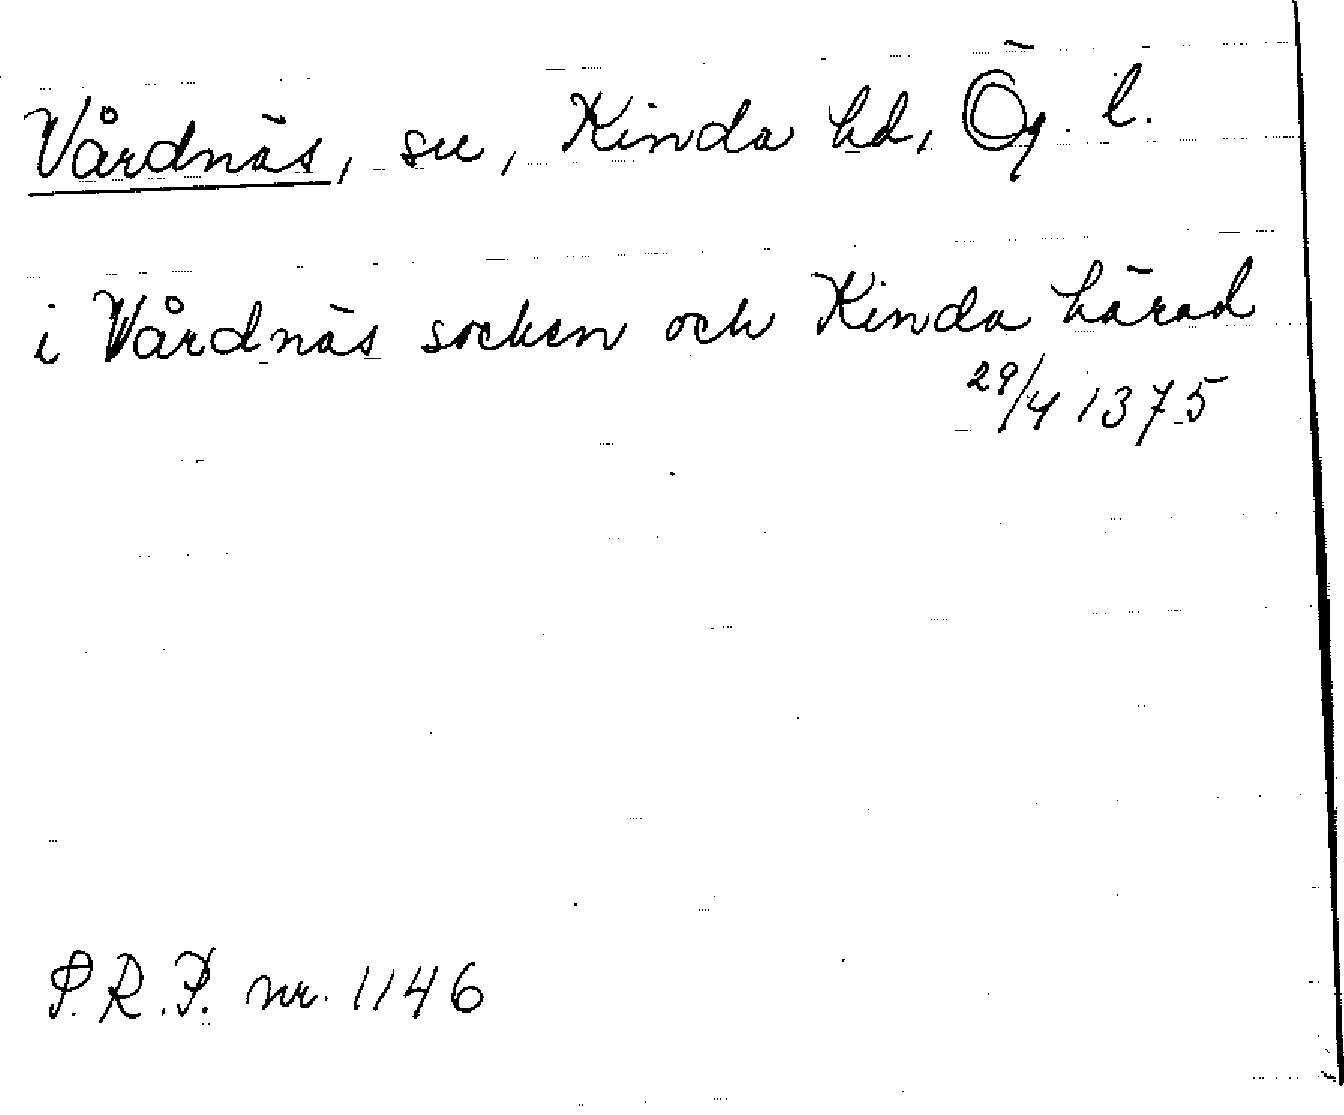 Vårdnäs, sn, Kinda hd, Ög. l.
i Vårdnäs socken och Kinda härad
29/4 1375
P.R.P. nr. 1146